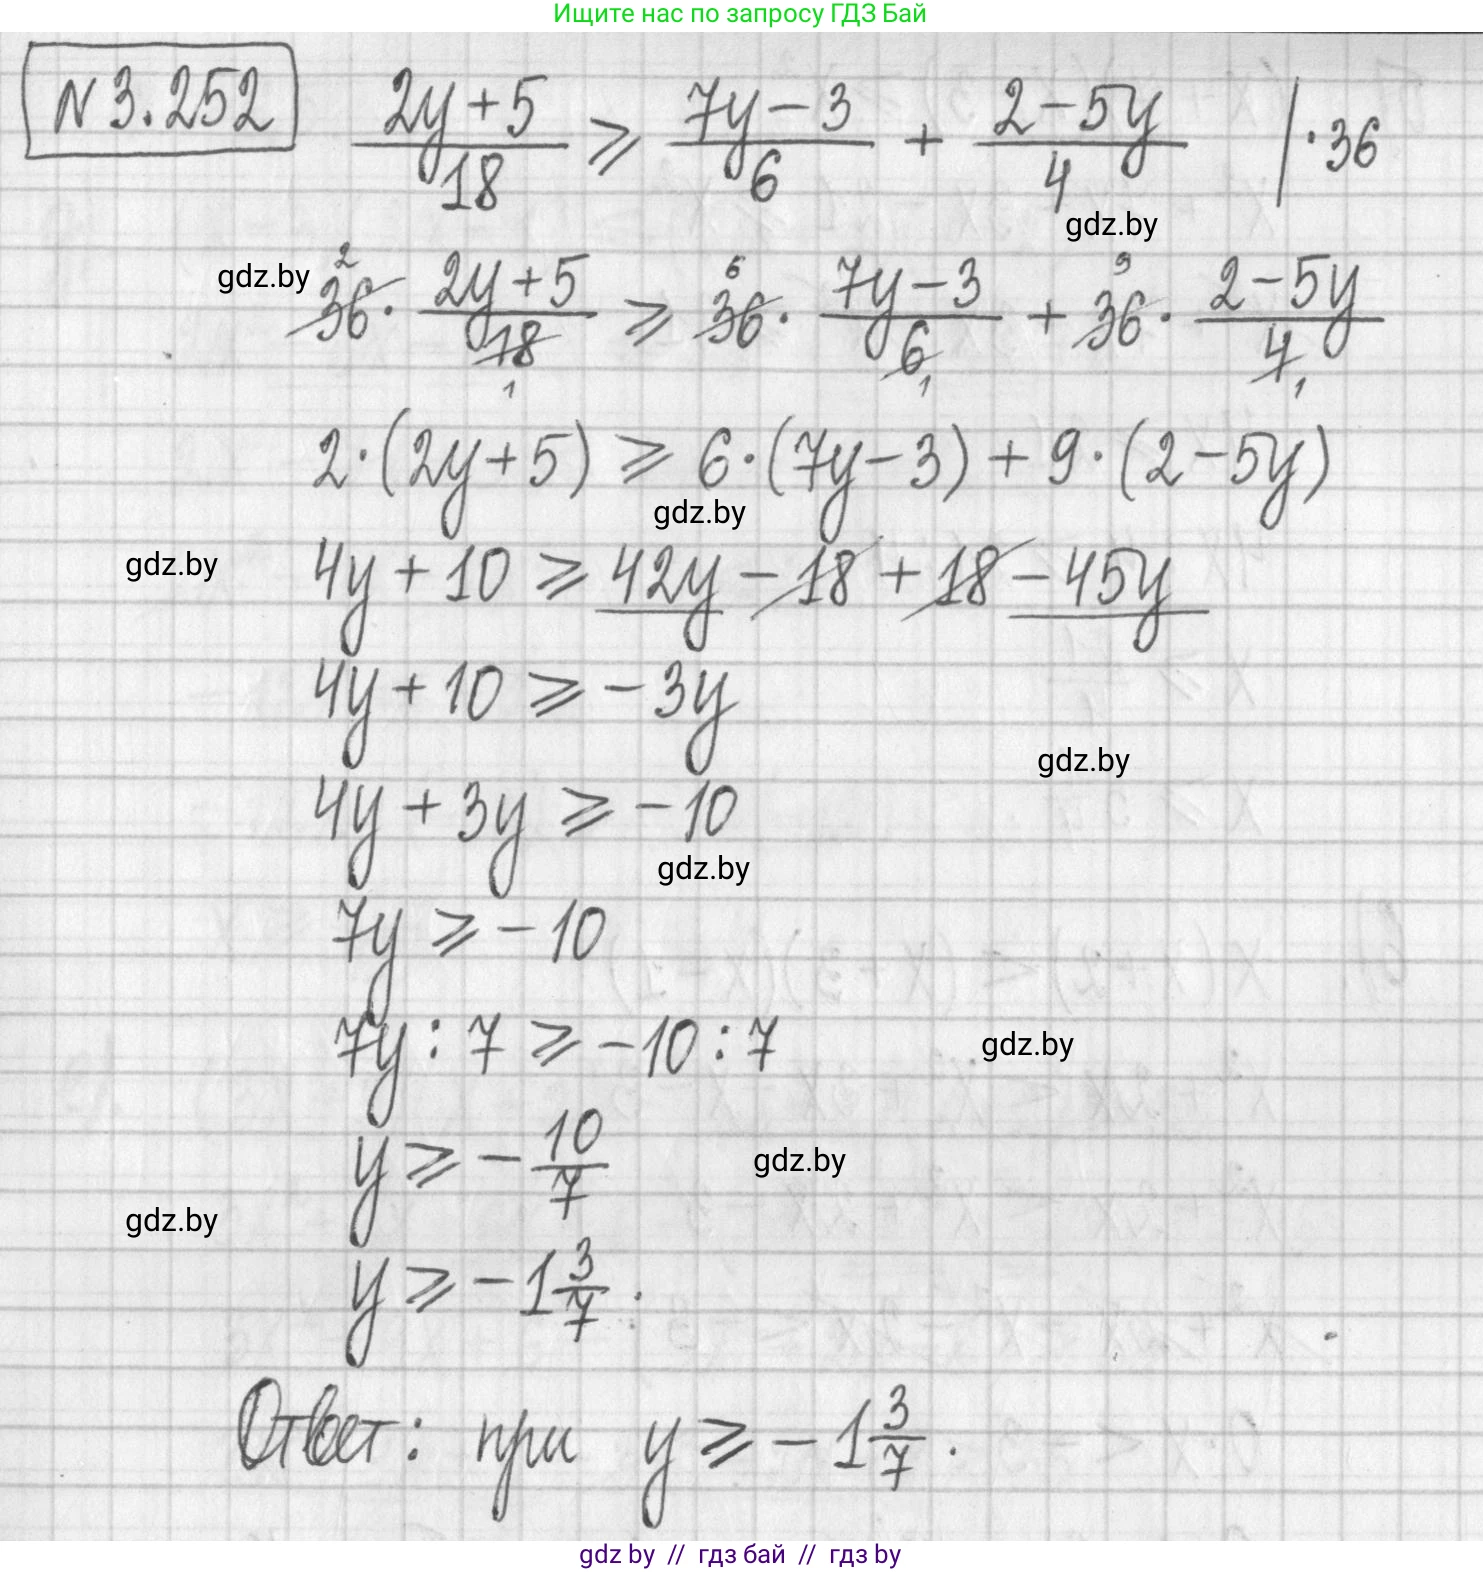 Ищите нас по запросу ГДЗ Бай
N 3.252 (2y+5)/18 ⩾ (7y-3)/6 + (2-5y)/4 | ·36
gdz.by
gdz.by
36² · (2y+5)/18₁ ⩾ 36⁶ · (7y-3)/6₁ + 36⁹ · (2-5y)/4₁
2·(2y+5) ⩾ 6·(7y-3) + 9·(2-5y)
gdz.by
gdz.by
4y + 10 ⩾ 42y - 18 + 18 - 45y
4y + 10 ⩾ -3y
gdz.by
4y + 3y ⩾ -10
gdz.by
7y ⩾ -10
7y : 7 ⩾ -10 : 7
gdz.by
y ⩾ -10/7
gdz.by
gdz.by
y ⩾ -1 3/7 .
Ответ: при y ⩾ -1 3/7 .
gdz by // гдз бай // гдз by